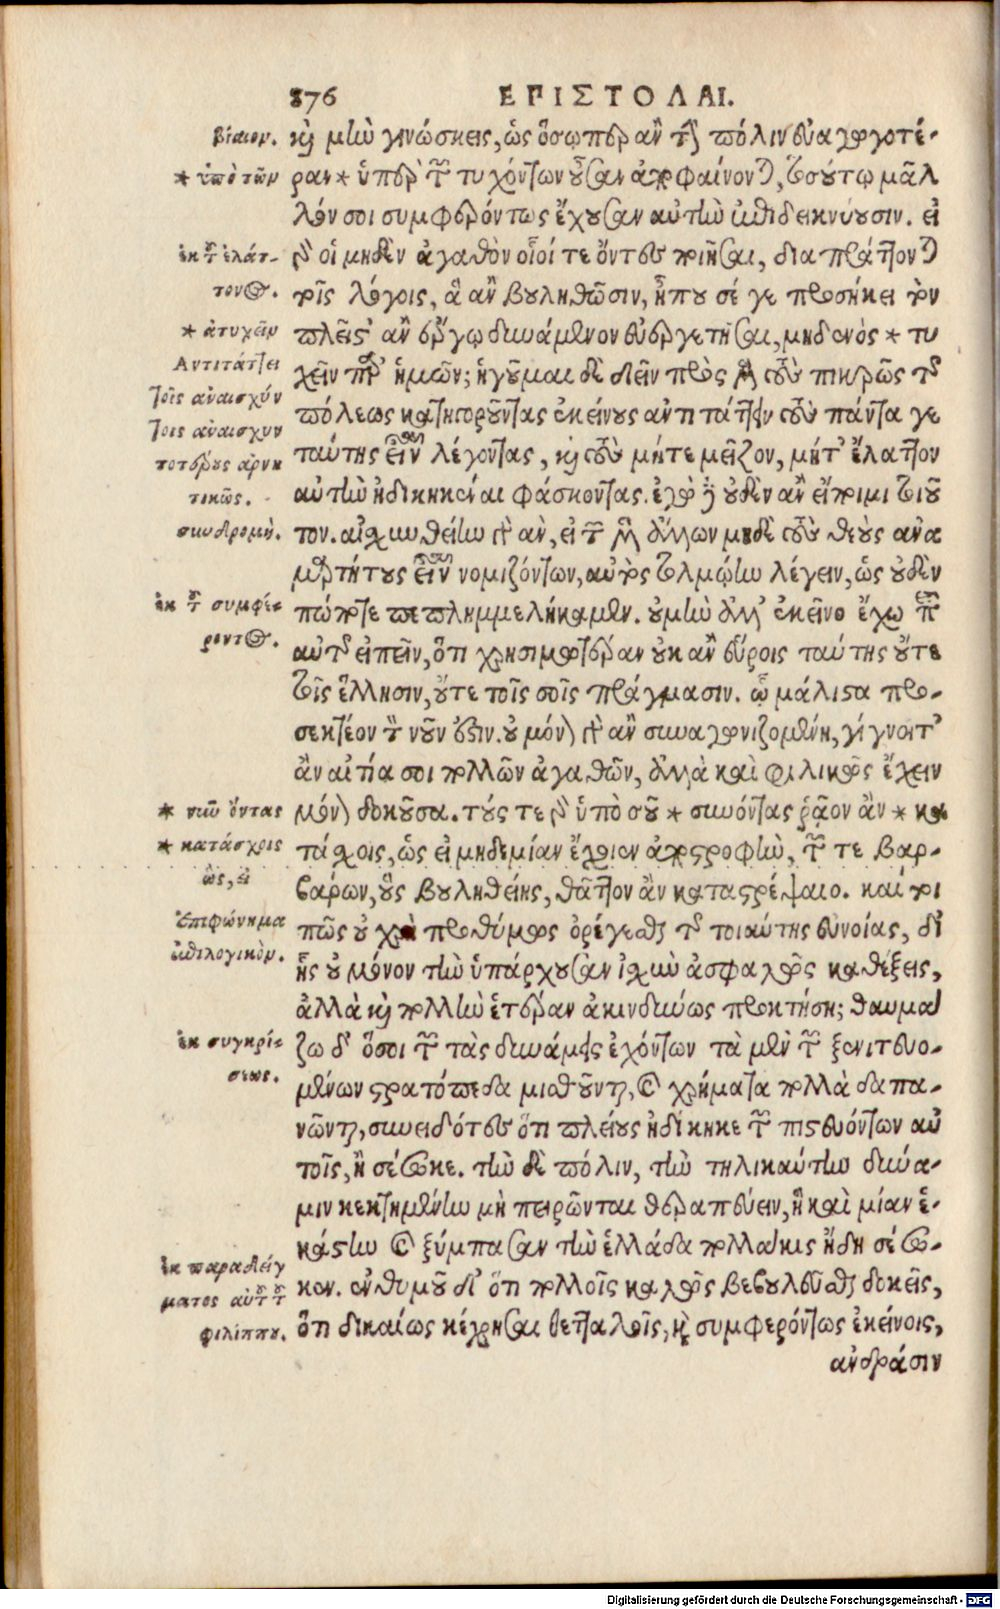 876 ΕΠΙΣΤΟΛΑΙ.
βίαιον.
* ὑπὸ τῶν
ἐκ τοῦ ἐλάτ-
τονος.
* ἀτυχεῖν
Αντιτάττει
τοῖς ἀναισχύν
τοις ἀναισχυν
τοτέρους ἀρνη
τικῶς.
συνδρομή.
ἐκ τοῦ συμφέ-
ροντος.
* νῦν ὄντας
* κατάσχοις
ὡς, εἰ
Ἐπιφώνημα
ἐπιλογικὸν.
ἐκ συγκρί-
σεως.
ἐκ παραδείγ
ματος αὐτοῦ τοῦ
φιλίππου.
καὶ μὴν γινώσκεις, ὡς ὅσῳπερ ἂν τὴν πόλιν εὐαγωγοτέ-
ραν * ὑπὲρ τῶν τυχόντων οὖσαν ἀποφαίνονται, τοσούτῳ μᾶλ
λόν σοι συμφερόντως ἔχουσαν αὐτὴν ἐπιδεικνύουσιν. εἰ
γὰρ οἱ μηδὲν ἀγαθὸν οἷοί τε ὄντες ποιῆσαι, διαπράττονται
τοῖς λόγοις, ἃ ἂν βουληθῶσιν, ἦπου σέ γε προσήκει τὸν
πλεῖστ' ἂν ἔργῳ δυνάμενον εὐεργετῆσαι, μηδενὸς * τυ
χεῖν παρ' ἡμῶν; ἡγοῦμαι δὲ δεῖν πρὸς μὲν τοὺς πικρῶς τῆς
πόλεως κατηγοροῦντας ἐκείνους ἀντιτάττειν τοὺς πάντα γε
ταύτης εἶναι λέγοντας, καὶ τοὺς μήτε μεῖζον, μήτ' ἔλαττον
αὐτὴν ἠδικηκέναι φάσκοντας. ἐγὼ δὲ οὐδὲν ἂν εἴποιμι τοιοῦ
τον. αἰσχυνθείην γὰρ ἂν, εἰ τῶν ἄλλων μηδὲ τοὺς θεοὺς ἀνα
μαρτήτους εἶναι νομιζόντων, αὐτὸς τολμῴην λέγειν, ὡς οὐδὲν
πώποτε πεπλημμελήκαμεν. οὐ μὴν ἀλλ' ἐκεῖνο ἔχω περὶ
αὐτῆς εἰπεῖν, ὅτι χρησιμωτέραν οὐκ ἂν εὕροις ταύτης οὔτε
τοῖς ἕλλησιν, οὔτε τοῖς σοῖς πράγμασιν. ᾧ μάλιστα προ-
σεκτέον τὸν νοῦν ἐστιν. οὐ μόνον γὰρ ἂν συναγωνιζομένη, γίγνοιτ'
ἂν αἰτία σοι πολλῶν ἀγαθῶν, ἀλλὰ καὶ φιλικῶς ἔχειν
μόνον δοκοῦσα. τούς τε γὰρ ὑπὸ σοῦ * συνόντας ῥᾷον ἂν * κα
τάσχοις, ὡς εἰ μηδεμίαν ἔχοιεν ἀποστροφὴν, τῶν τε βαρ-
βάρων, οὓς βουληθείης, θᾶττον ἂν καταστρέψαιο. καίτοι
πῶς οὐ χρὴ προθύμως ὀρέγεσθαι τῆς τοιαύτης εὐνοίας, δι'
ἧς οὐ μόνον τὴν ὑπάρχουσαν ἰσχὺν ἀσφαλῶς καθέξεις,
ἀλλὰ καὶ πολλὴν ἑτέραν ἀκινδύνως προσκτήση; θαυμά
ζω δ' ὅσοι τῶν τὰς δυνάμεις ἐχόντων τὰ μὲν τῶν ξενιτευο-
μένων στρατόπεδα μισθοῦνται, καὶ χρήματα πολλὰ δαπα-
νῶνται, συνειδότες ὅτι πλείους ἠδίκηκε τῶν πιστευόντων αὐ
τοῖς, ἢ σέσωκε. τὴν δὲ πόλιν, τὴν τηλικαύτην δύνα-
μιν κεκτημένην μὴ πειρῶνται θεραπεύειν, ἣ καὶ μίαν ἑ-
κάστην καὶ ξύμπασαν τὴν ἑλλάδα πολλάκις ἤδη σέσω-
κεν. ἐνθυμοῦ δ' ὅτι πολλοῖς καλῶς βεβουλεῦσθαι δοκεῖς,
ὅτι δικαίως κέχρησαι θετταλοῖς, καὶ συμφερόντως ἐκείνοις,
ἀνδράσιν
Digitalisierung gefördert durch die Deutsche Forschungsgemeinschaft - DFG